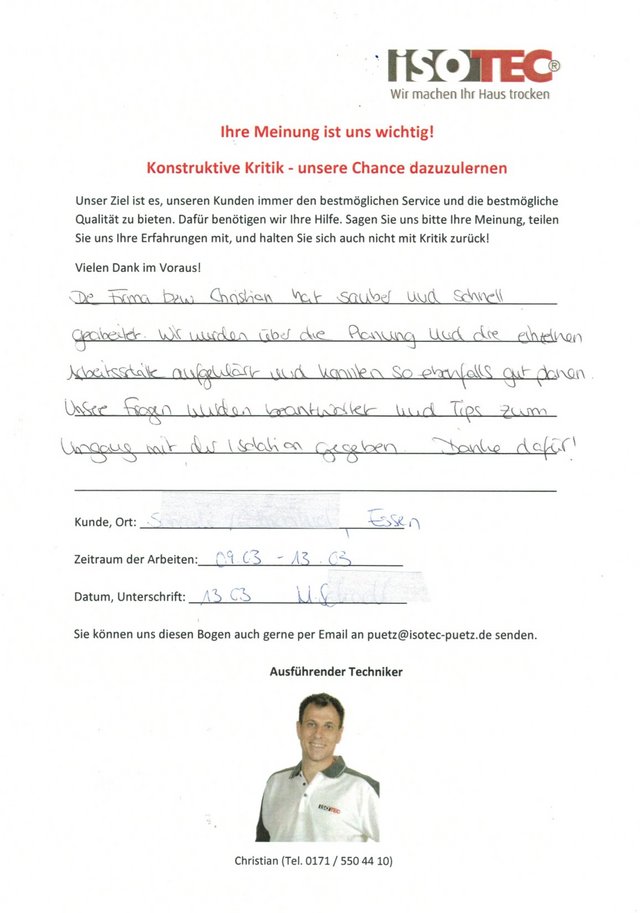 ISOTEC®
Wir machen Ihr Haus trocken
Ihre Meinung ist uns wichtig!
Konstruktive Kritik - unsere Chance dazuzulernen
Unser Ziel ist es, unseren Kunden immer den bestmöglichen Service und die bestmögliche
Qualität zu bieten. Dafür benötigen wir Ihre Hilfe. Sagen Sie uns bitte Ihre Meinung, teilen
Sie uns Ihre Erfahrungen mit, und halten Sie sich auch nicht mit Kritik zurück!
Vielen Dank im Voraus!
Die Firma bzw Christian hat sauber und schnell
gearbeitet. Wir wurden über die Planung und die einzelnen
Arbeitsschritte aufgeklärt und konnten so ebenfalls gut planen.
Unsere Fragen wurden beantwortet und Tips zum
Umgang mit der Isolation gegeben. Danke dafür!
Kunde, Ort: Essen
Zeitraum der Arbeiten: 09.03 - 13.03
Datum, Unterschrift: 13.03 M.
Sie können uns diesen Bogen auch gerne per Email an puetz@isotec-puetz.de senden.
Ausführender Techniker
ISOTEC
Christian (Tel. 0171 / 550 44 10)